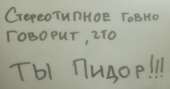 Стереотипное говно
говорит, что
ТЫ ПИДОР!!!